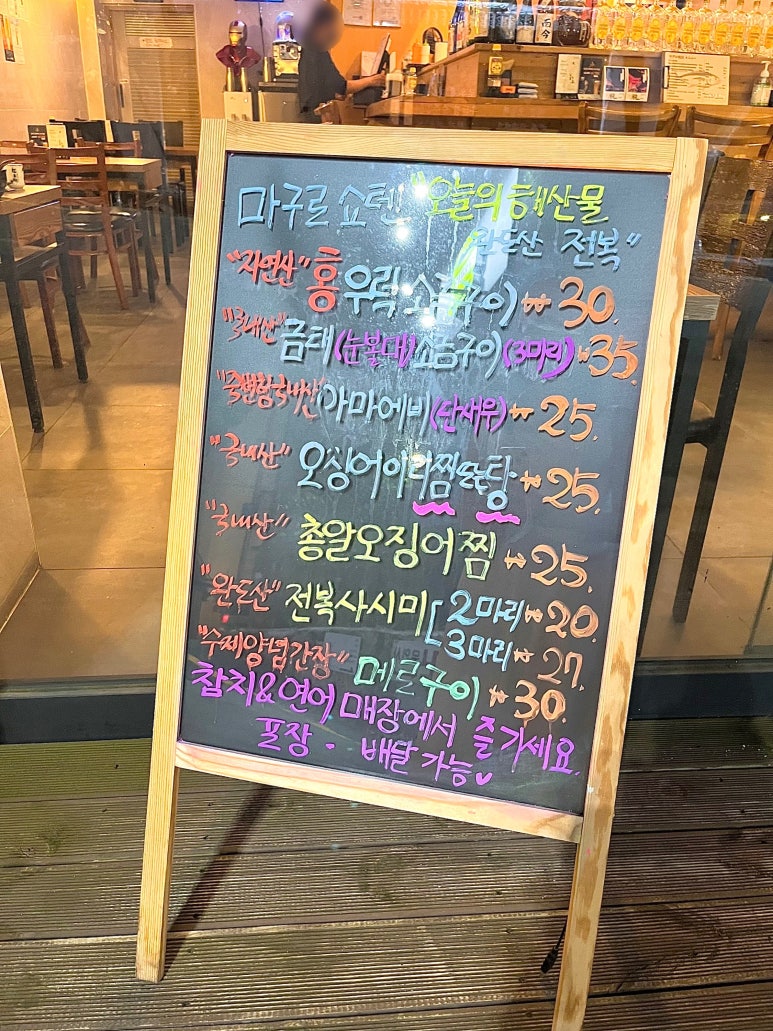 마구로 쇼텐 "오늘의 해산물
완도산 전복"
"자연산" 홍우럭 소금구이 ₩30.
"국내산" 금태(눈볼대)소금구이(3마리) ₩35.
아마에비(단새우) ₩25.
"국내산" 오징어이리찜또는탕 ₩25.
"국내산" 총알오징어찜 ₩25.
"완도산" 전복사시미 [2마리 ₩20.
3마리 ₩27.
"수제양념간장" 메로구이 ₩30.
참치&연어 매장에서 즐기세요.
포장 · 배달 가능♥